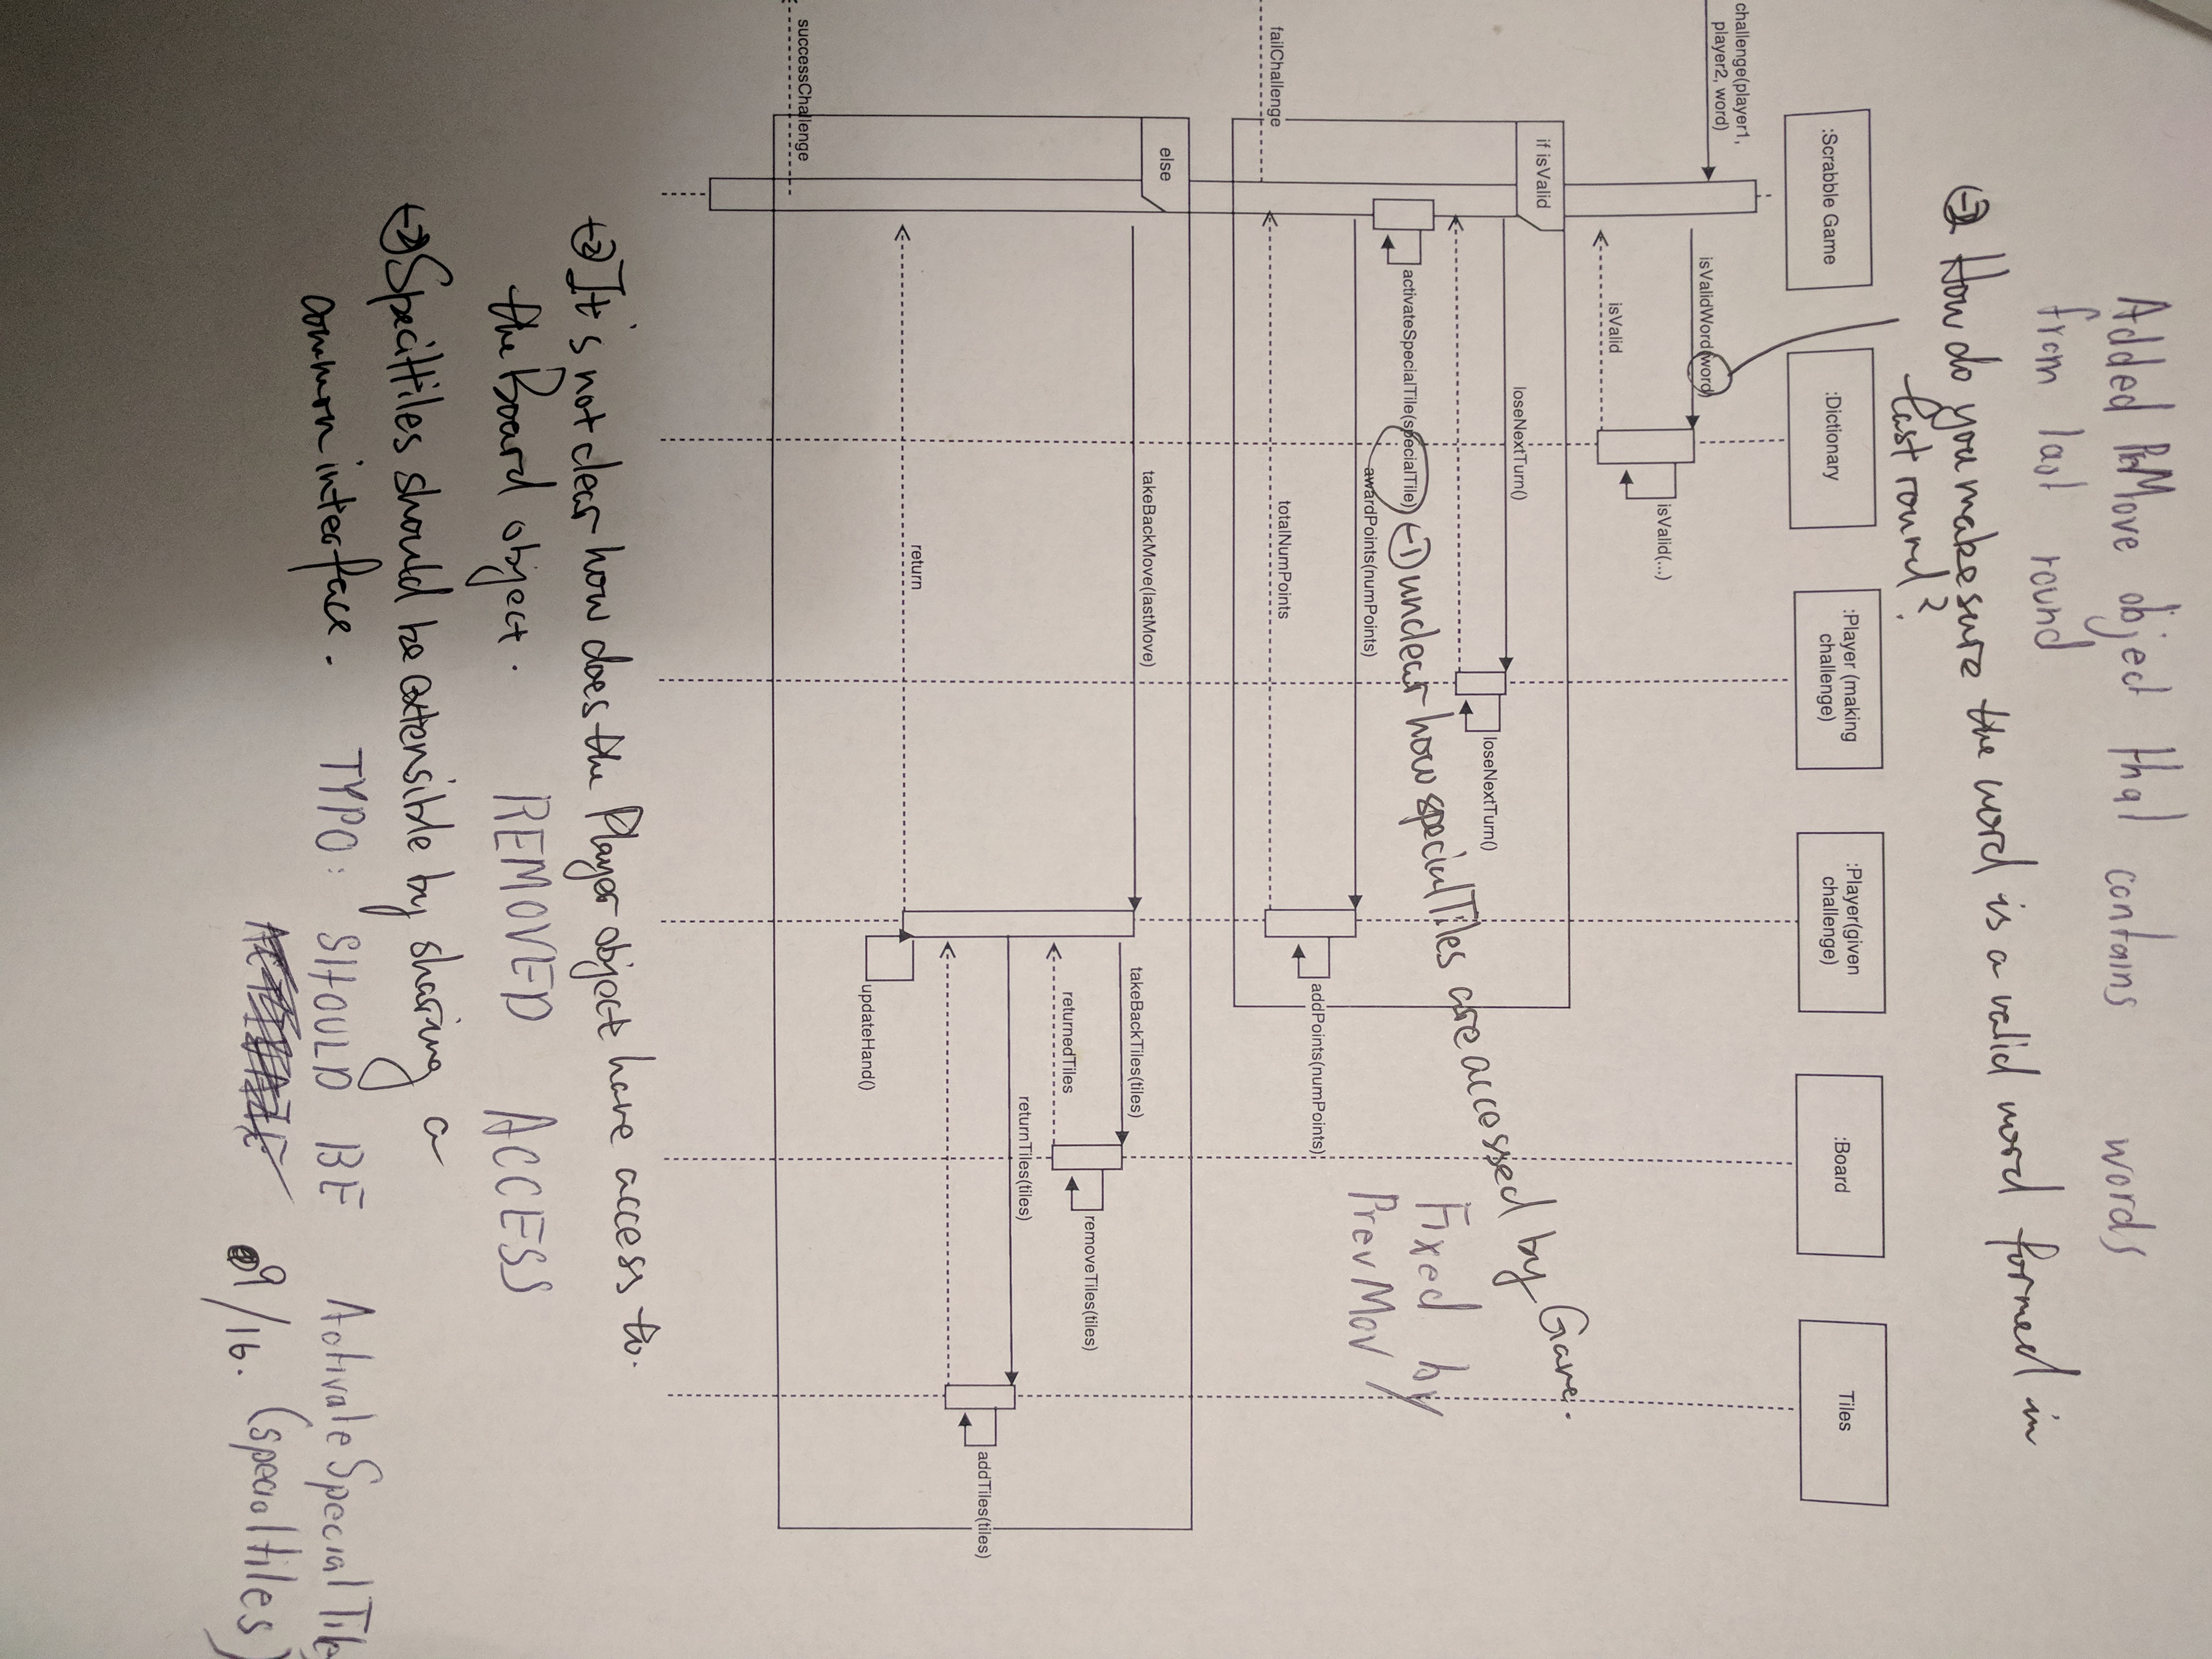 Added PrevMove object that contains words
from last round
-2 How do you make sure the word is a valid word formed in
last round?
:Scrabble Game
:Dictionary
:Player (making
challenge)
:Player(given
challenge)
:Board
Tiles
challenge(player1,
player2, word)
isValidWord(word)
isValid(...)
isValid
if isValid
loseNextTurn()
loseNextTurn()
activateSpecialTile(specialTile)
-1 unclear how specialTiles are accessed by Game.
Fixed by
PrevMov
awardPoints(numPoints)
addPoints(numPoints)
failChallenge
totalNumPoints
else
takeBackMove(lastMove)
takeBackTiles(tiles)
removeTiles(tiles)
returnedTiles
returnTiles(tiles)
addTiles(tiles)
return
updateHand()
successChallenge
-2 It's not clear how does the Player object have access to.
the Board object. REMOVED ACCESS
-2 Specittiles should be extensible by sharing a
common interface. TYPO: SHOULD BE ActivateSpecialTile
9/16. (specialtiles)